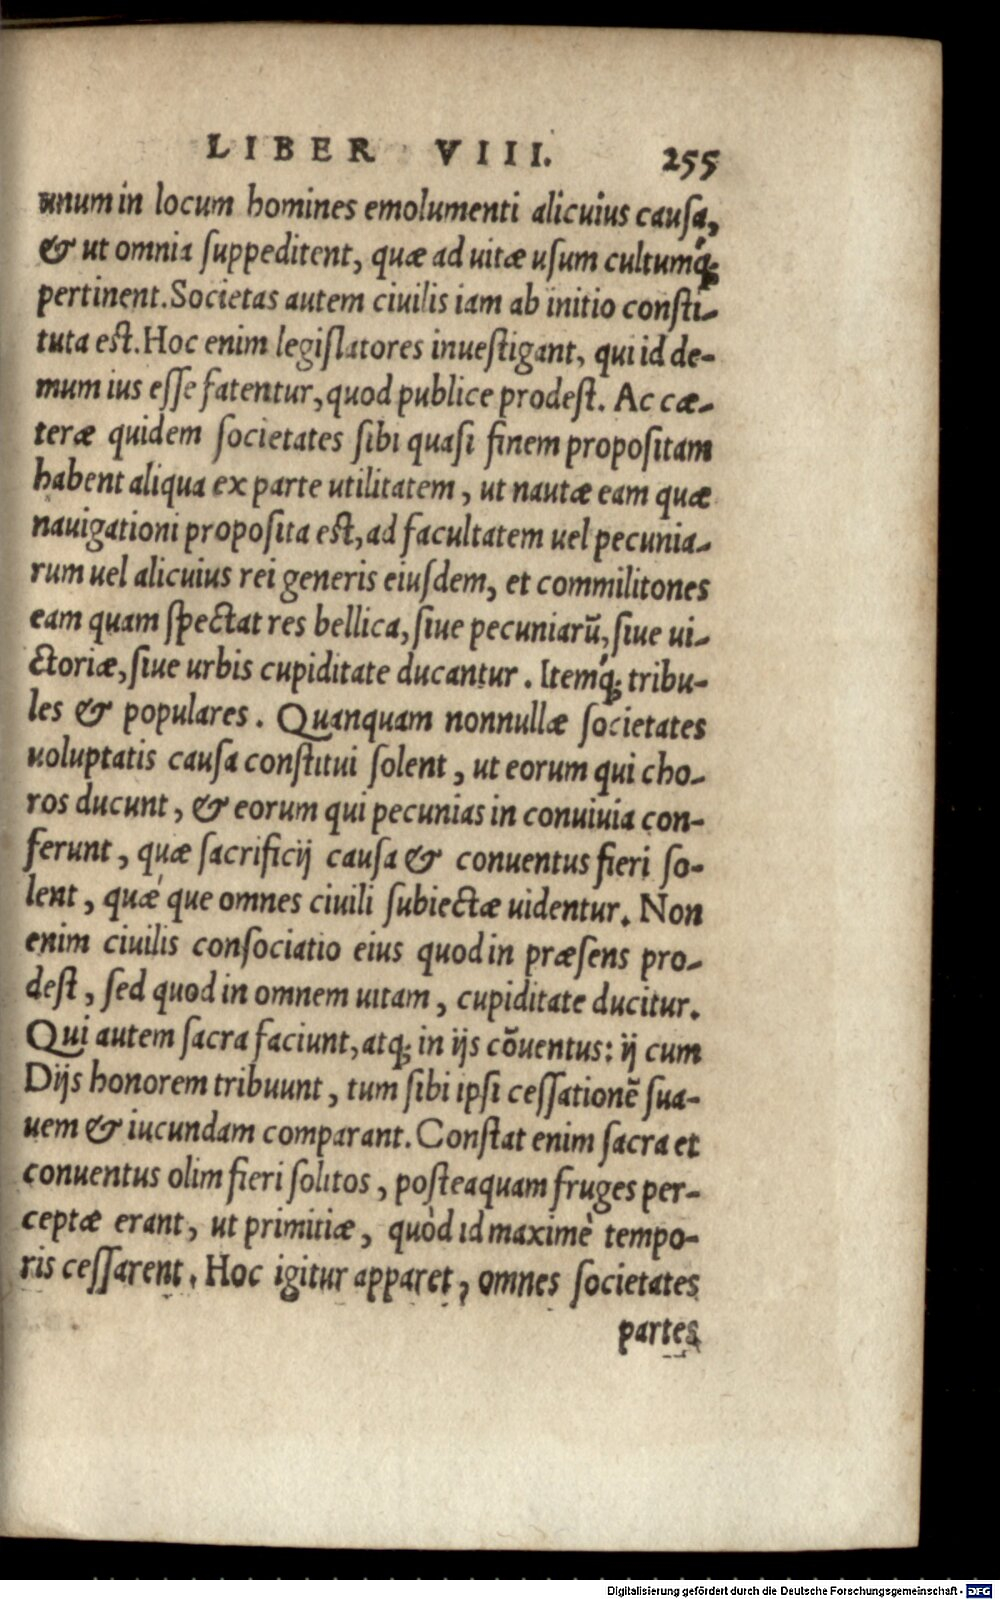 LIBER VIII. 255
unum in locum homines emolumenti alicuius cauſa,
& ut omnia ſuppeditent, quæ ad uitæ uſum cultumq́;
pertinent. Societas autem ciuilis iam ab initio conſti-
tuta eſt. Hoc enim legiſlatores inueſtigant, qui id de-
mum ius eſſe fatentur, quod publice prodeſt. Ac cæ-
teræ quidem ſocietates ſibi quaſi finem propoſitam
habent aliqua ex parte utilitatem, ut nautæ eam quæ
nauigationi propoſita eſt, ad facultatem uel pecunia-
rum uel alicuius rei generis eiuſdem, et commilitones
eam quam ſpectat res bellica, ſiue pecuniarū, ſiue ui-
ctoriæ, ſiue urbis cupiditate ducantur. Itemq́; tribu-
les & populares. Quanquam nonnullæ ſocietates
uoluptatis cauſa conſtitui ſolent, ut eorum qui cho-
ros ducunt, & eorum qui pecunias in conuiuia con-
ferunt, quæ ſacrificij cauſa & conuentus fieri ſo-
lent, quæ´ que omnes ciuili ſubiectæ uidentur. Non
enim ciuilis conſociatio eius quod in præſens pro-
deſt, ſed quod in omnem uitam, cupiditate ducitur.
Qui autem ſacra faciunt, atq; in ijs cōuentus: ij cum
Dijs honorem tribuunt, tum ſibi ipſi ceſſationē ſua-
uem & iucundam comparant. Conſtat enim ſacra et
conuentus olim fieri ſolitos, poſteaquam fruges per-
ceptæ erant, ut primitiæ, quòd id maximè tempo-
ris ceſſarent. Hoc igitur apparet, omnes ſocietates
partes
Digitalisierung gefördert durch die Deutsche Forschungsgemeinschaft - DFG